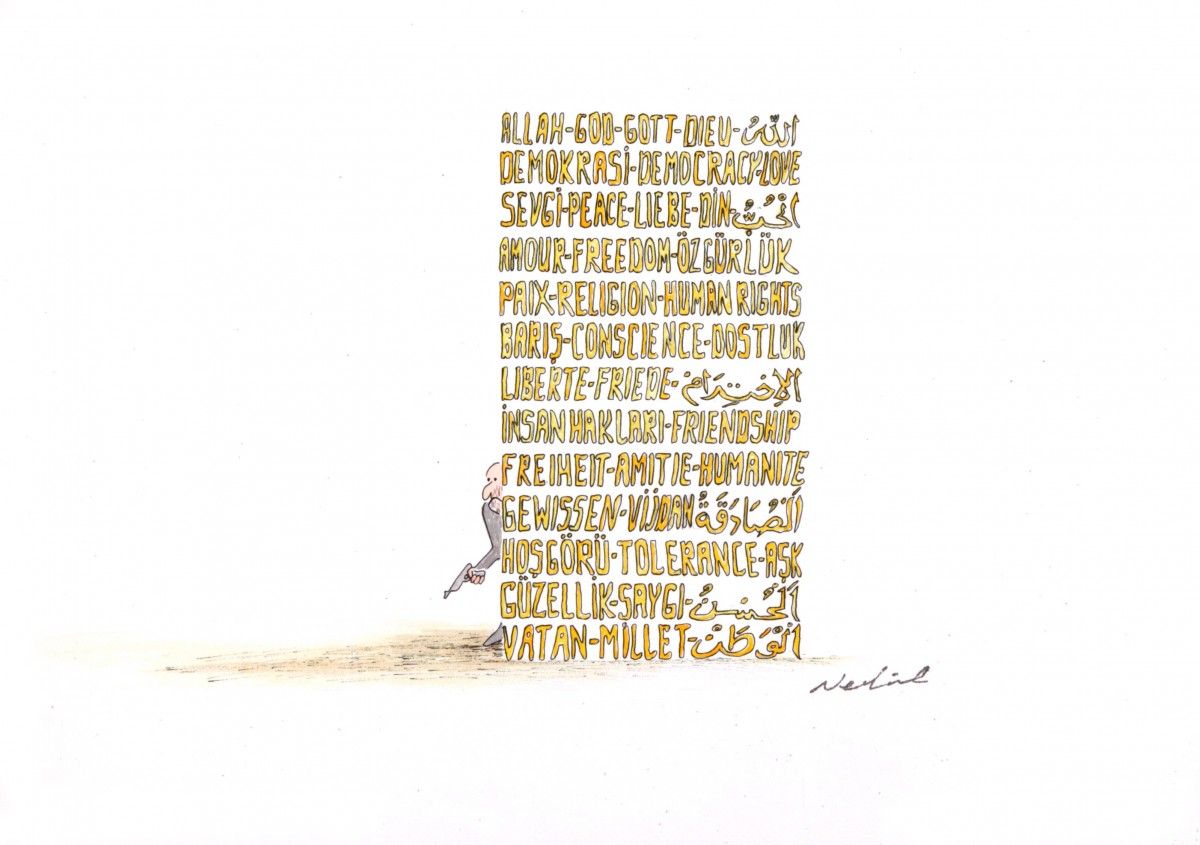 ALLAH-GOD-GOTT-DIEU-اللّٰهُ
DEMOKRASİ-DEMOCRACY-LOVE
SEVGİ-PEACE-LIEBE-DİN-اَلْحُبُّ
AMOUR-FREEDOM-ÖZGÜRLÜK
PAIX-RELIGION-HUMAN RIGHTS
BARIŞ-CONSCIENCE-DOSTLUK
LIBERTE-FRIEDE-اَلْاِحْتِرَامْ
İNSAN HAKLARI-FRIENDSHIP
FREIHEIT-AMITIE-HUMANITE
GEWISSEN-VİJDAN اَلصَّادَقَةُ
HOŞGÖRÜ-TOLERANCE-AŞK
GÜZELLİK-SAYGI-اَلْحُسْنُ
VATAN-MİLLET-اَلْوَطَنْ